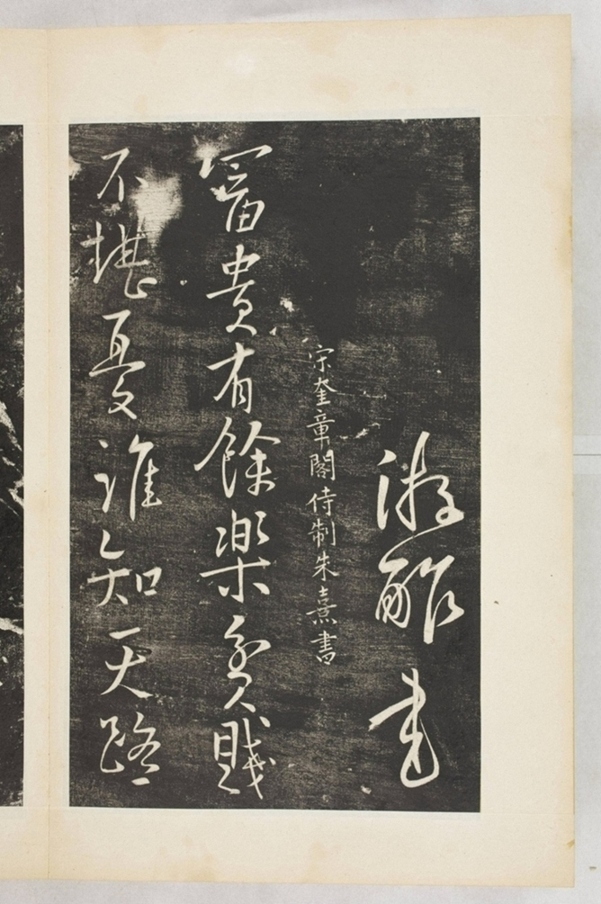 游酢書
宋奎章閣侍制朱熹書
富貴有餘樂貧賤
不堪憂誰知天路